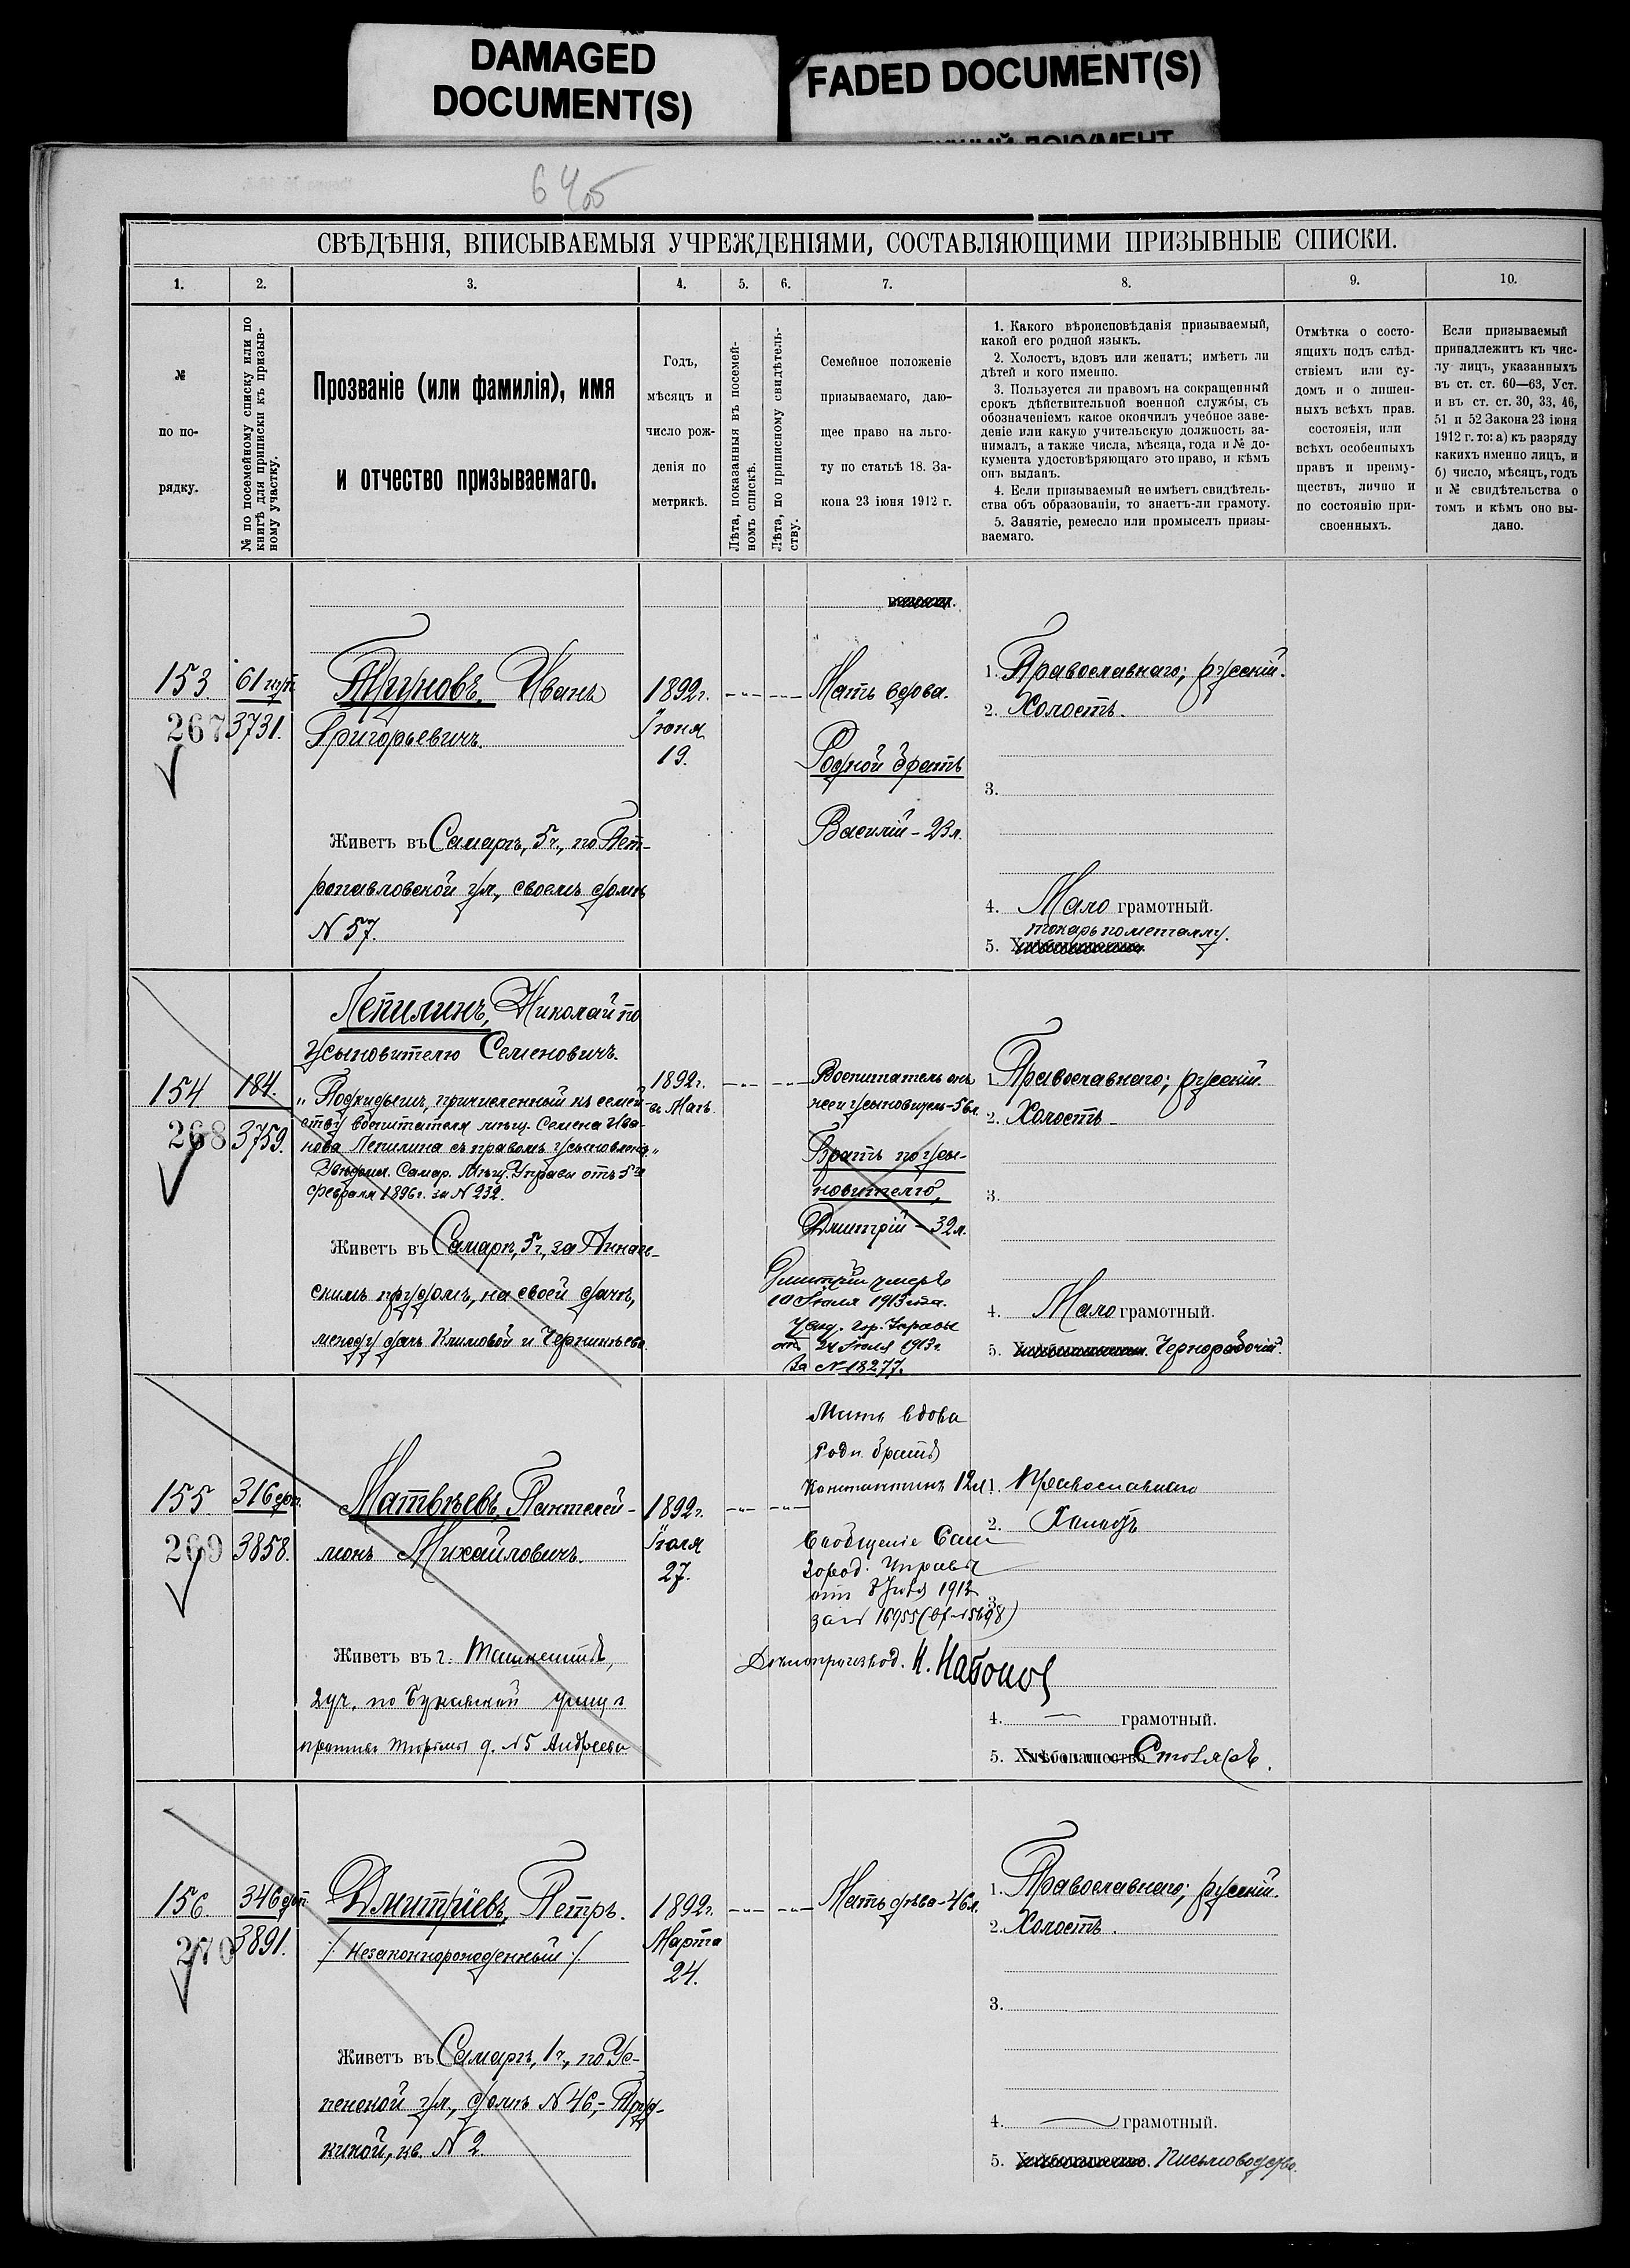 DAMAGED
DOCUMENT(S)
FADED DOCUMENT(S)
СВѢДѢНІЯ, ВПИСЫВАЕМЫЯ УЧРЕЖДЕНІЯМИ, СОСТАВЛЯЮЩИМИ ПРИЗЫВНЫЕ СПИСКИ.
1. 2. 3. 4. 5. 6. 7. 8. 9. 10.
№
по по-
рядку.
№ по посемейному списку или по
книгѣ для приписки къ призыв-
ному участку.
Прозваніе (или фамилія), имя
и отчество призываемаго.
Годъ,
мѣсяцъ и
число рож-
денія по
метрикѣ.
Лѣта, показанныя въ посемей-
номъ спискѣ.
Лѣта, по приписному свидѣтель-
ству.
Семейное положеніе
призываемаго, даю-
щее право на льго-
ту по статьѣ 18. За-
кона 23 іюня 1912 г.
1. Какого вѣроисповѣданія призываемый,
какой его родной языкъ.
2. Холостъ, вдовъ или женатъ; имѣетъ ли
дѣтей и кого именно.
3. Пользуется ли правомъ на сокращенный
срокъ дѣйствительной военной службы, съ
обозначеніемъ какое окончилъ учебное заве-
деніе или какую учительскую должность за-
нималъ, а также числа, мѣсяца, года и № до-
кумента удостовѣряющаго это право, и кѣмъ
онъ выданъ.
4. Если призываемый не имѣетъ свидѣтель-
ства объ образованіи, то знаетъ-ли грамоту.
5. Занятіе, ремесло или промыселъ призы-
ваемаго.
Отмѣтка о состо-
ящихъ подъ слѣд-
ствіемъ или су-
домъ и о лишен-
ныхъ всѣхъ прав.
состоянія, или
всѣхъ особенныхъ
правъ и преиму-
ществъ, лично и
по состоянію при-
своенныхъ.
Если призываемый
принадлежитъ къ чис-
лу лицъ, указанныхъ
въ ст. ст. 60—63, Уст.
и въ ст. ст. 30, 33, 46,
51 и 52 Закона 23 іюня
1912 г. то: а) къ разряду
какихъ именно лицъ, и
б) число, мѣсяцъ, годъ
и № свидѣтельства о
томъ и кѣмъ оно вы-
дано.
153
267
61
3731.
Труновъ, Иванъ
Григорьевичъ.
Живетъ въ Самарѣ, 5ч., по Пет-
ропавловской ул., своемъ домѣ
N 57.
1892г.
Іюня
19.
Мать вдова.
Родной братъ
Василій - 23 л.
1. Православнаго; русскій.
2. Холостъ.
3.
4. Мало грамотный.
токарь по металлу.
5.
154
268
184.
3759.
Лепилинъ, Николай по
усыновителю Семеновичъ.
„Подкидышъ, причисленный къ семей-
ству воспитателя мѣщ. Семена Ива-
нова Лепилина съ правомъ усыновленія„
Увѣдомл. Самар. Мѣщ. Управы отъ 5го
февраля 1896г. за N 232.
Живетъ въ Самарѣ, 5ч., за Аннаев-
скимъ прудомъ, на своей дачѣ,
между дачъ Климовой и
1892г.
Воспитатель онъ
же и усыновитель - 56л.
Братъ по усы-
новителю,
Дмитрій - 32 л.
Дмитрій умеръ
10 Іюля 1913 года.
Увѣд. Гор. Управы
отъ 24 Іюля 1913г.
за N 18277.
1. Православнаго; русскій.
2. Холостъ
3.
4. Мало грамотный.
5. Чернорабочій.
155
269
316
3858.
Матвѣевъ, Пантелей-
монъ Михайловичъ.
Живетъ въ г. Ташкентѣ,
2 уч. по улицѣ
противъ тюрьмы д. N 5 Андреева
1892г.
Іюля
27.
Мать вдова
Родн. братъ
Константинъ 12 л.
Сообщеніе Сам
Город. Управы
Дѣлопроизвод.
1. Православнаго
2. Холостъ
3.
4. — грамотный.
5. Хлѣбопашество Столяръ.
156.
270
346
3891.
Дмитріевъ, Петръ.
/: Незаконнорожденный :/
Живетъ въ Самарѣ, 1ч., по Ус-
пенской ул., домъ N 46, - Труд-
киной, кв. N 2.
1892г.
Марта
24.
Мать дѣва - 46 л.
1. Православнаго; русскій.
2. Холостъ.
3.
4. — грамотный.
5. Письмоводство.